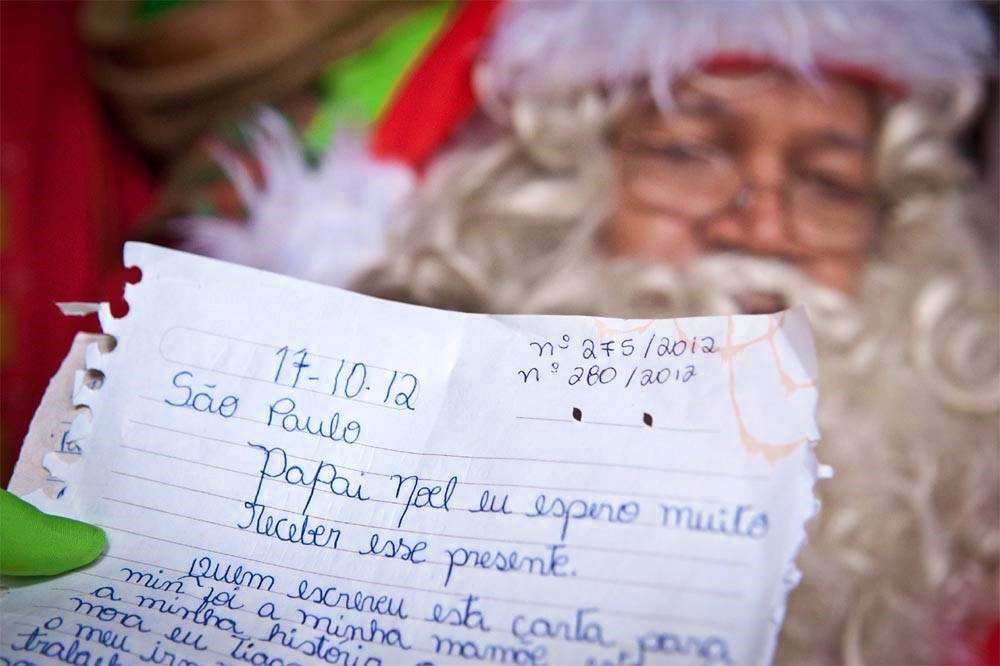 nº 275/2012
nº 280/2012
17-10.12
São Paulo
Papai Noel eu espero muito
receber esse presente.
Quem escreveu esta carta, para
min foi a minha mamãe
a minha historia
mora eu Tiago
o meu irm
trabal